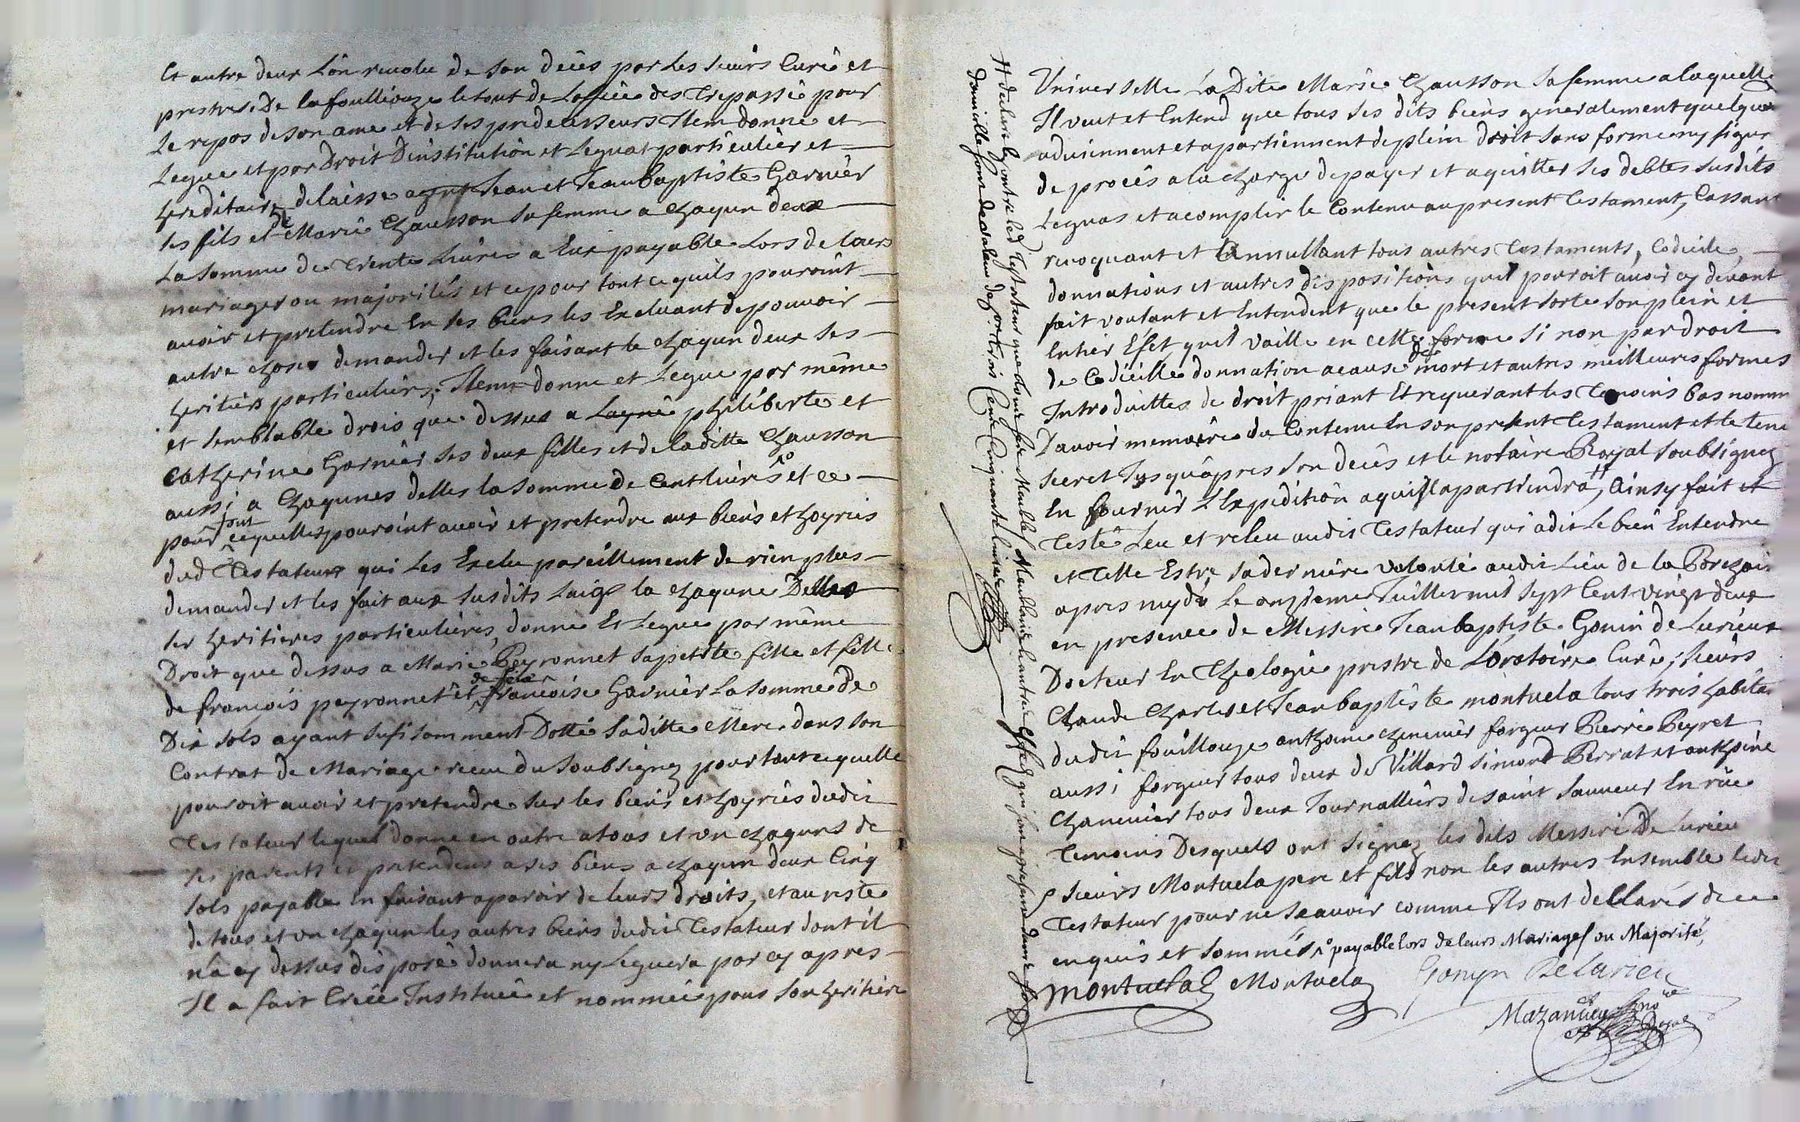 Et autre deux Lôn revolu de son décès par les sieurs Curé et
prestres De la foulliouze le tout de Loffice des Trepassé pour
Le repos de son ame et de ses predecesseurs Item donne et
Legue et par Droit Dinstitution et Leguat particulier et
hereditaire delaisse a Jean et Jean baptiste Garnier
ses fils et de Marie Chausson sa femme a chaqun deux
La somme de trente Livres a Eux payable Lors de leurs
mariages ou majorités et ce pour tout ce quils pouroint
avoir et pretendre En ses biens les Excluant de pouvoir
autre chose demander et les faisant le chaqun deux ses
heritiers particuliers, Item donne et Legue par même
et semblable drois que dessus a Layné philiberte et
Catherine Garnier ses deux filles et de laditte Chausson
aussi a chaqunes delles la somme de Cent livres et ce
pour tout ce quelles pouroint avoir et pretendre aux biens et hoyries
dud Testateur qui les Exclu pareillement de rien plus
demander et les fait aux susdits Laigs la chaqune Delles
ses heritieres particulières, donne Et Legue par même
Droit que dessus a Marie Peyronnet sa petitte fille et fille
de francois peyronnet et de feue francoise Garnier La somme de
Dix sols ayant sufisamment Dotté saditte Mere dans son
Contrat de Mariage receu du soubsigné pour tout ce quelle
pouroit avoir et pretendre sur les biens et hoyries dudit
Testateur lequel donne en outre a tous et un chaquns de
ses parents et pretendens a ses biens a chaqun deux Cinq
sols payable En faisant aparoir de leurs droits, et au reste
de tous et un chaqun les autres biens dudit Testateur dont il
n'a cy dessus disposé donnera ny Leguera par cy apres
Il a fait Créé Institué et nommé pour son heritiere
Universelle La Dite Marie Chausson sa femme a laquelle
Il veut et Entend que tous ses dits biens generalement quelquon
adviennent et apartiennent de plein droit sans forme ny figure
de procès a la charge de payer et aquitter ses debtes susdits
Leguas et acomplir le Contenu au present Testament, Cassant
revoquant et annullant tous autres Testaments, Codicile,
donnations et autres dispositions quil pouroit avoir cy devant
fait voulant et Entendent que le present sorte son plein et
Entier Efet quil vaille en cette forme si non par droit
de Codicille donnation a cause de mort et autres meilleures formes
Introduittes de droit priant Et requerant les Temoins bas nomm
Davoir memoire du Contenu En son present Testament et le tenir
secret Jusqu'apres son decès et le notaire Royal soubsigné
En fournir L'Expedition a qui Il apartiendra, †† Ainsy fait et
Testé Leu et releu audit Testateur qui a dit Le bien Entendre
et Telle Estre sa derniere volonté audit Lieu de la
apres mydi Le onzieme Juillet mil sept Cent vingt deux
en presence de Messire Jean baptiste Gonin de Lurieux
Docteur En Theologie prestre de Loratoire Curé, sieurs
Claude Charles et Jean baptiste montuela tous trois habitan
dudit fouillouze anthoine chenevier forgeur Pierre Peyret
aussi forgeur tous deux de Villard simond Perrat et anthoine
Chanevier tous deux Journalliers de saint Sauveur En rüe
Temoins Desquels ont signez les dits Messire De Lurieu
& sieurs Montuela pere et fils non les autres Ensemble ledit
Testateur pour ne sçavoir comme Ils ont dellaré de ce
enquis et sommés, payable lors de leurs Mariages ou Majorité,
Montuela Montuela Gonyn De Lurieu
Mazanvieu no.re
Royal
†† declare En outre led Testateur que
domicille forme de valeur de Trois Cent Cinquante livres